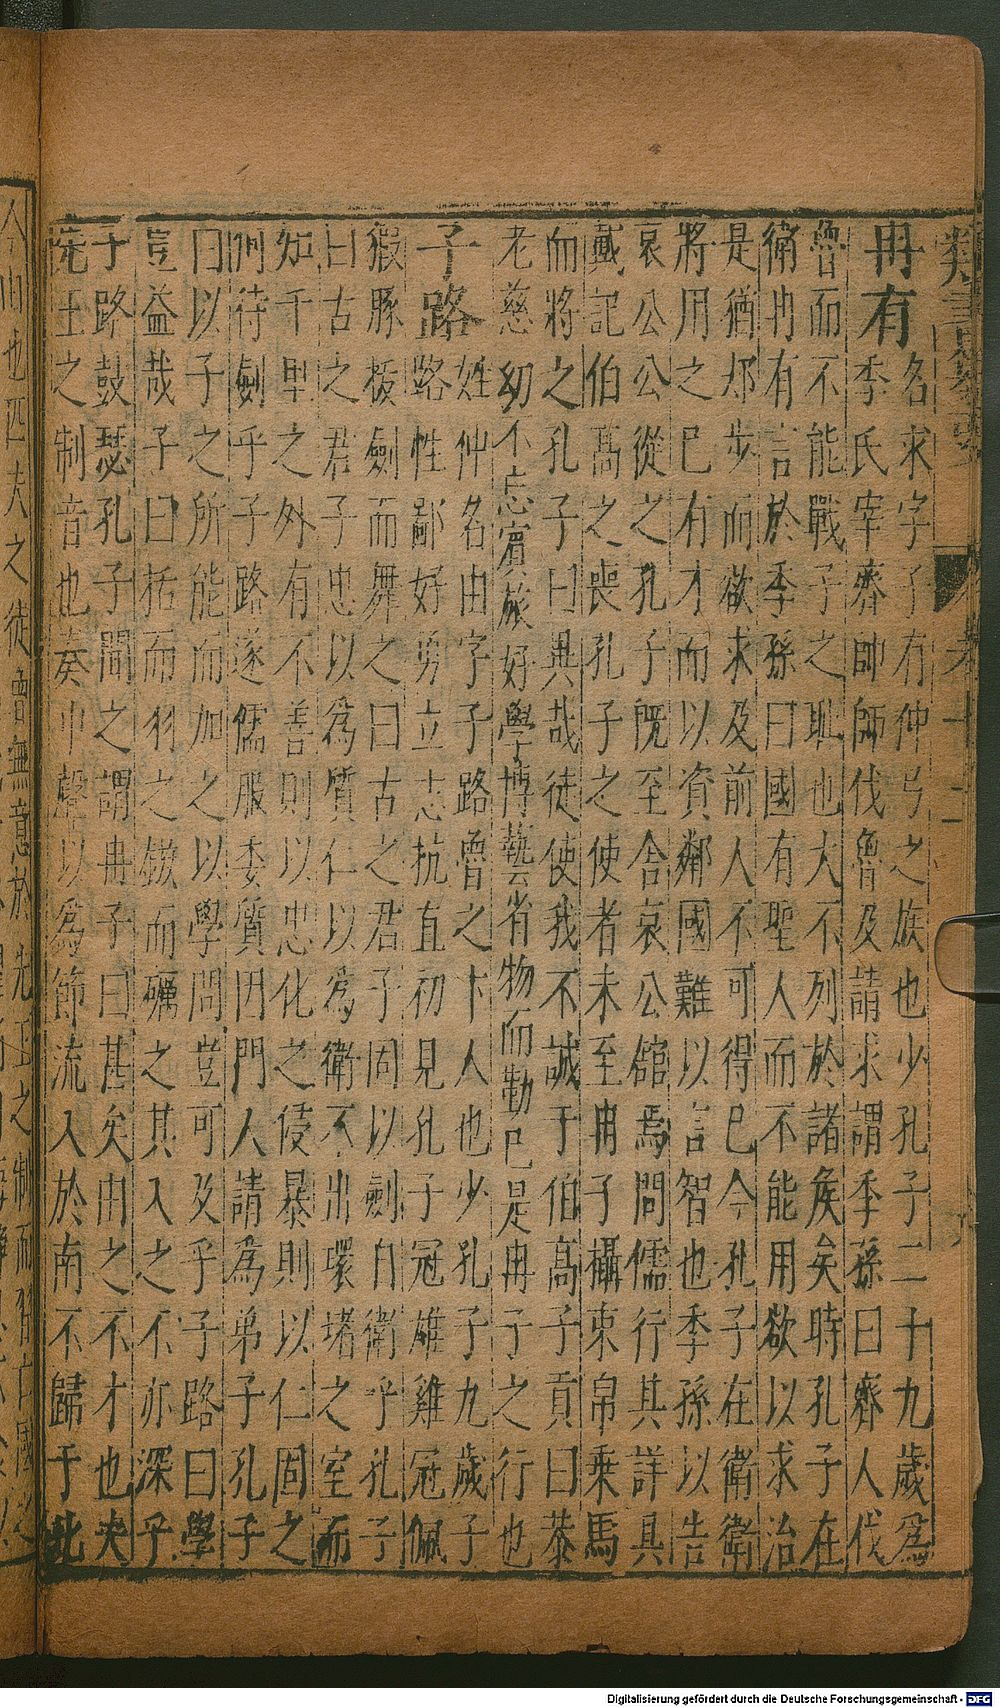 冉有名求字子有仲弓之族也少孔子二十九歲爲
季氏宰齊師師伐魯及請求謂季孫曰齊人伐
魯而不能戰子之恥也大不列於諸矦矣時孔子在
衛冉有言於季孫曰國有聖人而不能用欲以求治
是猶却步而欲求及前人不可得已今孔子在衛衛
將用之已有才而以資鄰國難以言智也季孫以告
哀公公從之孔子旣至舍哀公館焉問儒行其詳具
戴記伯高之喪孔子之使者未至冉子攝束帛乗馬
而將之孔子曰異哉徒使我不誠于伯高子貢曰恭
老慈幼不忘賔旅好學博藝省物而勤已是冉子之行也
子路姓仲名由字子路魯之卞人也少孔子九歲子
路性鄙好勇立志抗直初見孔子冠雄雞冠佩
豭豚拔劍而舞之曰古之君子固以劍自衛乎孔子
曰古之君子忠以爲質仁以爲衛不出環堵之室而
知千里之外有不善則以忠化之侵暴則以仁固之
何待劍乎子路遂儒服委質因門人請爲弟子孔子
曰以子之所能而加之以學問豈可及乎子路曰學
豈益哉子曰括而羽之鏃而礪之其入之不亦深乎
子路鼓瑟孔子聞之謂冉子曰甚矣由之不才也夫
先王之制音也奏中聲以爲節流入於南不歸于北
Digitalisierung gefördert durch die Deutsche Forschungsgemeinschaft - DFG